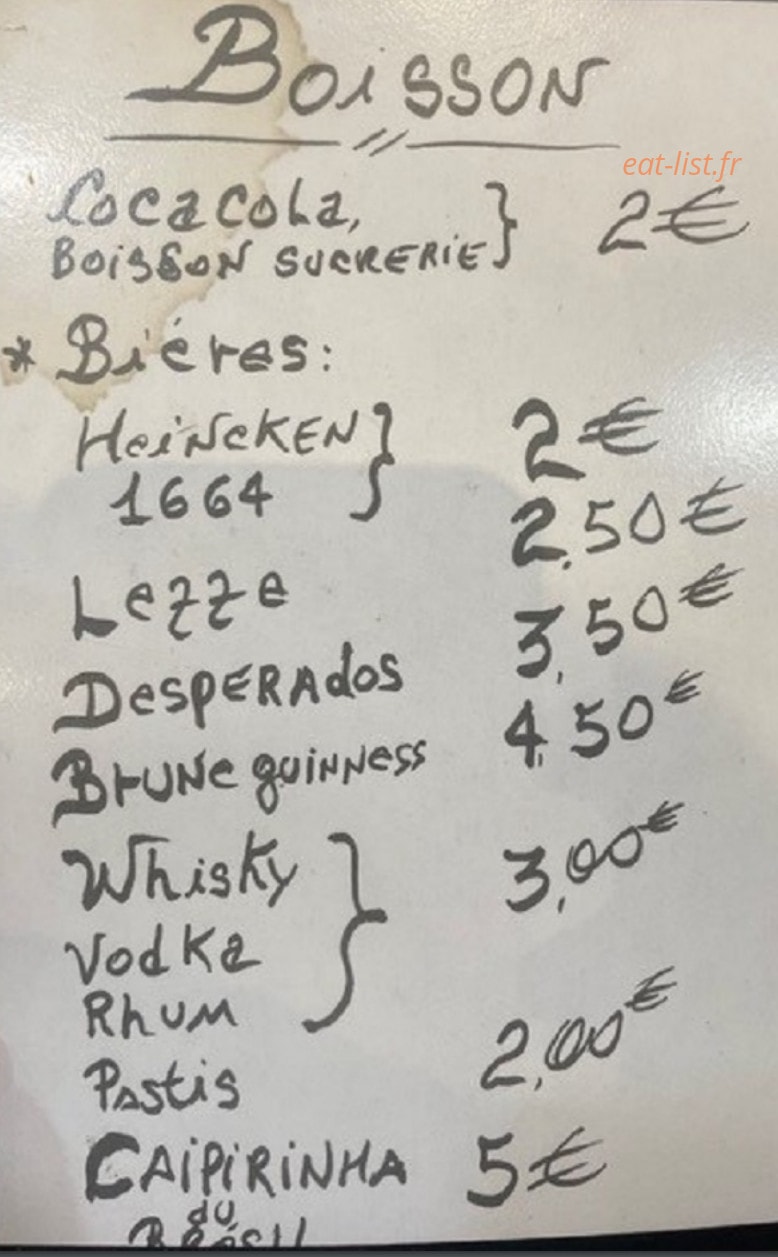 Boisson
eat-list.fr
Coca cola, 2€
Boisson sucrerie
* Biéres:
Heincken 2€
1664
Lezze 2,50€
Desperados 3,50€
Brune guinness 4,50€
Whisky 3,00€
Vodka
Rhum
Pastis 2,00€
CAIPIRINHA 5€
du
Brésil